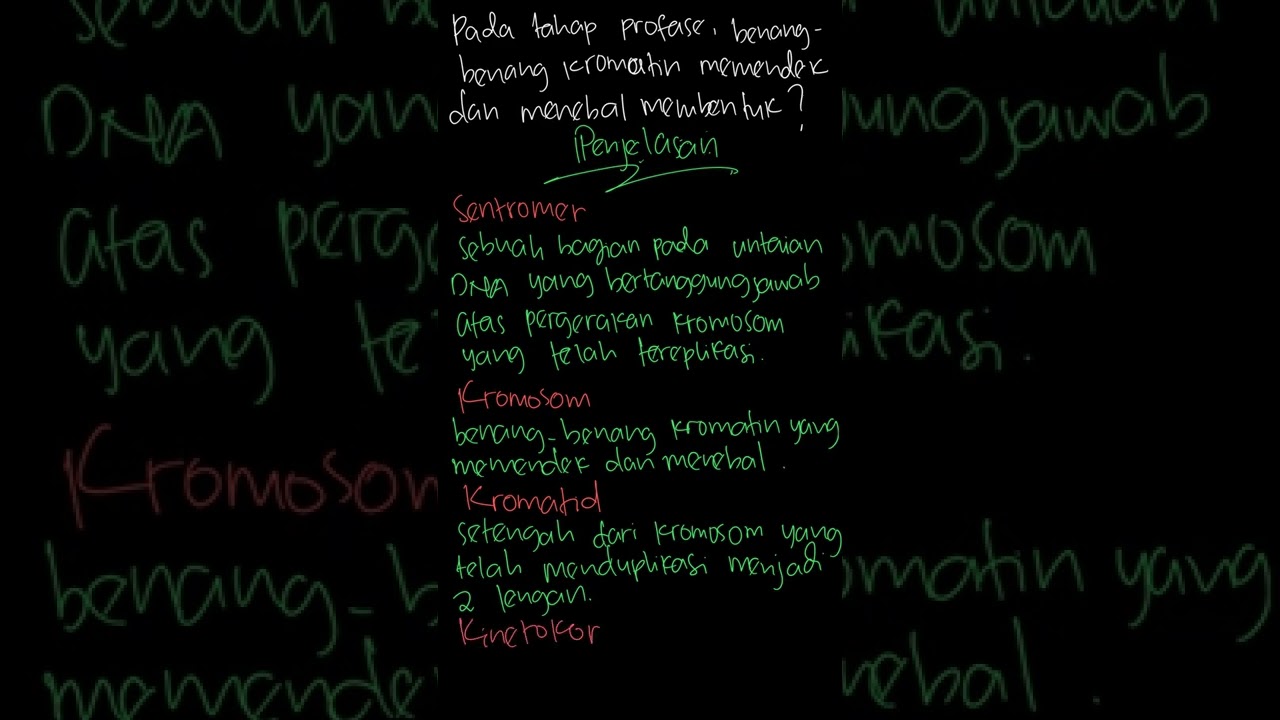 Pada tahap profase, benang-
benang kromatin memendek
dan menebal membentuk?
Penjelasan
Sentromer
sebuah bagian pada untaian
DNA yang bertanggungjawab
atas pergerakan kromosom
yang telah tereplikasi.
Kromosom
benang-benang kromatin yang
memendek dan menebal.
Kromatid
setengah dari kromosom yang
telah menduplikasi menjadi
2 lengan.
Kinetokor